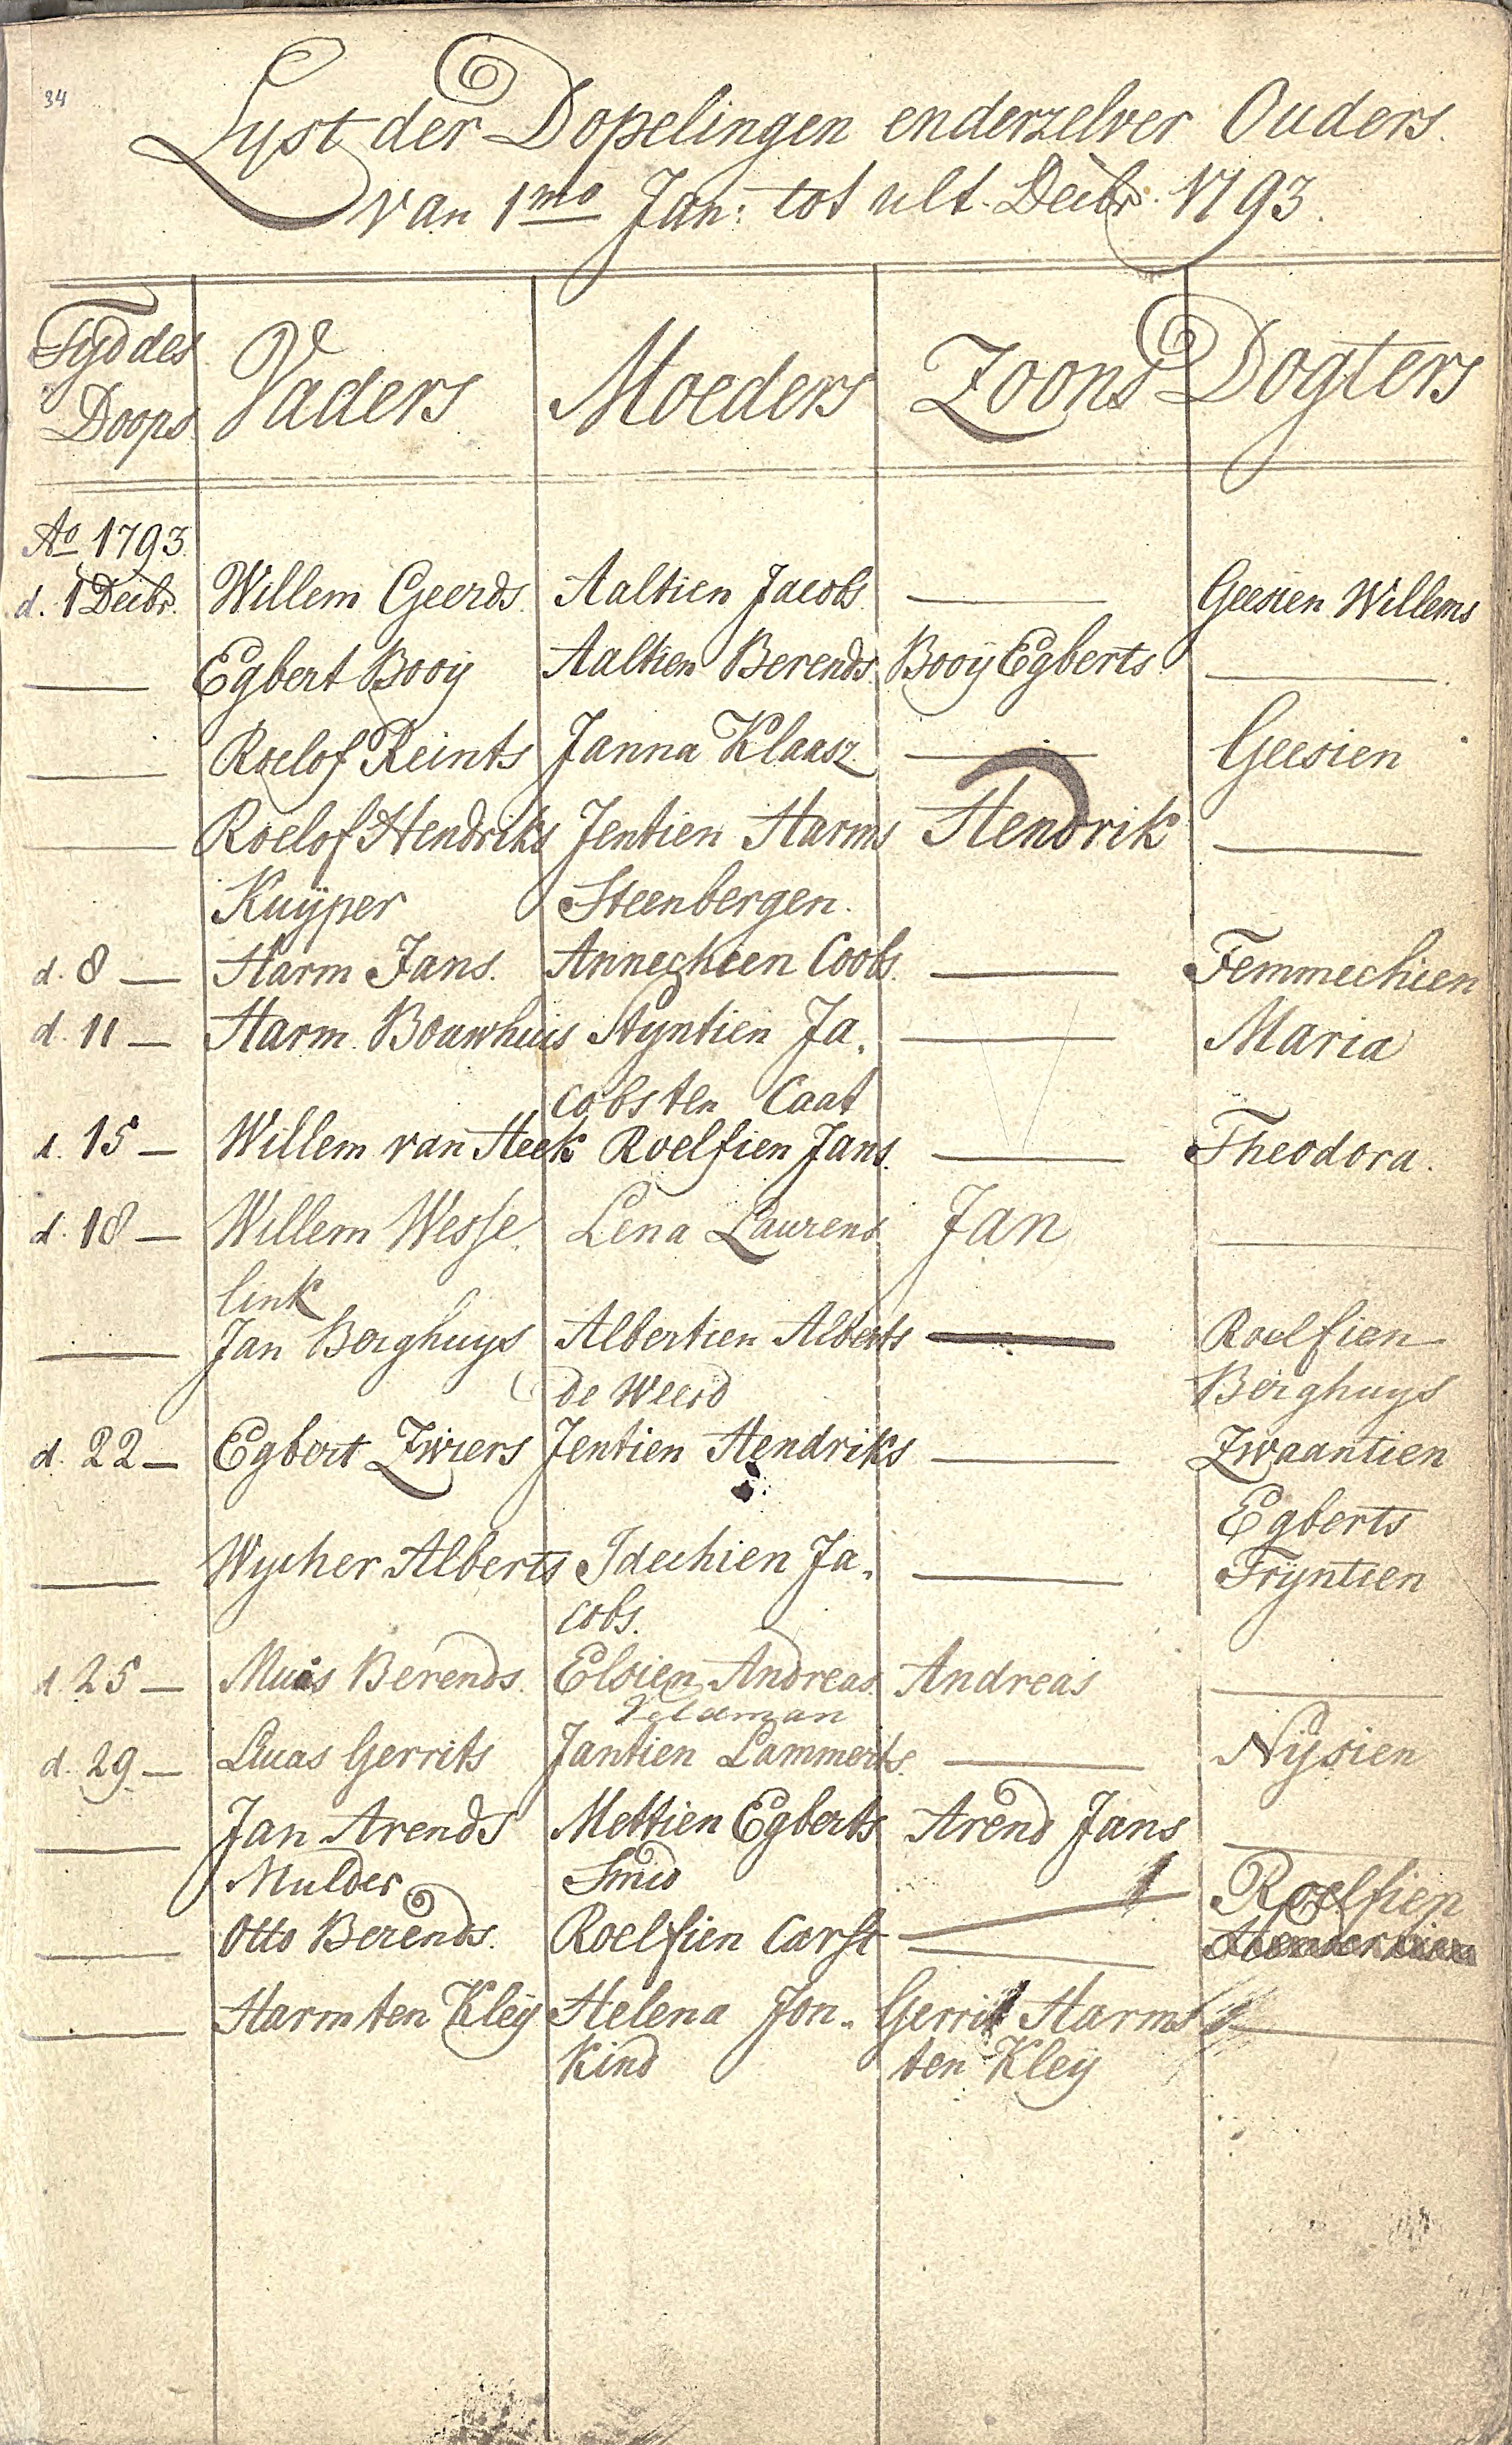 34
Lyst der Dopelingen enderzelver Ouders.
van 1mo Jan: tot ult. Decbr. 1793.
Tyd des Doops Vaders Moeders Zoons Dogters
Ao 1793
d. 1 Decbr. Willem Geerds. Aaltien Jacobs — Geesien Willems
— Egbert Booÿ Aaltien Berends. Booÿ Egberts —
— Roelof Reints Janna Klaasz — Geesien
— Roelof Hendriks Jentien Harms Hendrik —
Kuÿper Steenbergen.
d. 8 — Harm Jans. Annechien Coobs. — Femmechien
d. 11 — Harm Bouwhuis Stÿntien Ja- — Maria
cobs ten Caat
d. 15 — Willem van Heek Roelfien Jans. — Theodora.
d. 18 — Willem Wesse- Lena Laurens Jan —
link
— Jan Berghuys Albertien Alberts — Roelfien
de Weerd Berghuys
d. 22 — Egbert Zwiers Jentien Hendriks — Zwaantien
Egberts
— Wycher Alberts Idechien Ja- — Trÿntien
cobs.
d. 25 — Muis Berends. Elsien Andreas Andreas —
d. 29 — Lucas Gerrits Jantien Lammerts. — Nÿsien
— Jan Arends Mettien Egberts Arend Jans —
Mulder Smid
— Otto Berends. Roelfien Carst — Roelfien
— Harm ten Kleÿ Helena Jon- Gerrit Harms —
kind ten Kleÿ